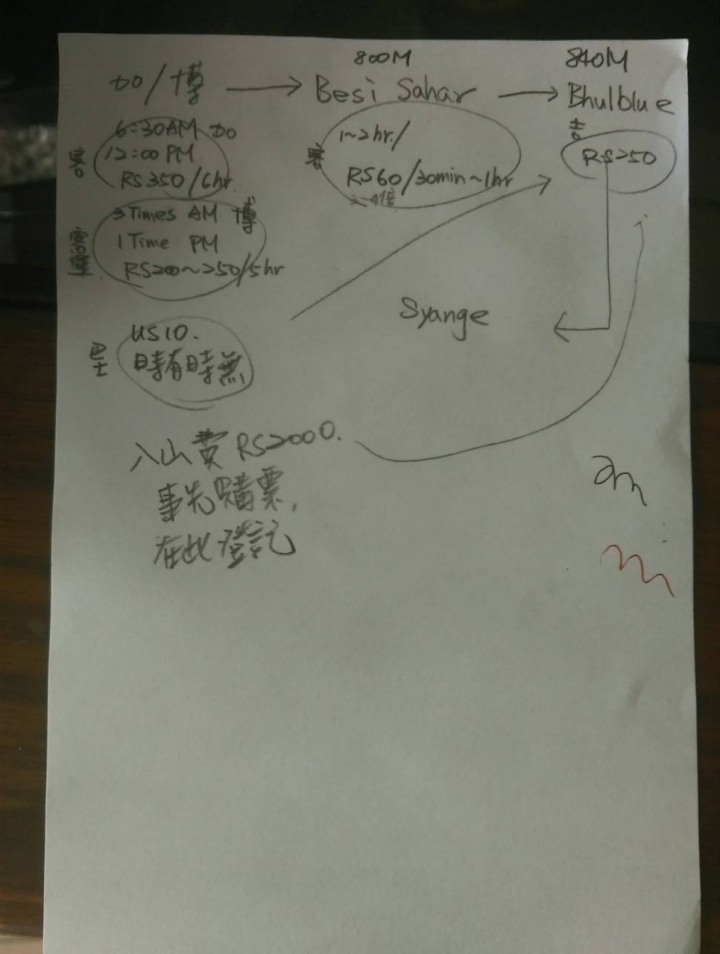 加/博 → Besi Sahar → Bhulblue
800M
840M
客
6:30AM 加
12:00PM
RS350/6hr
3 Times AM 博
1 Time PM
RS200~250/5hr
1~2hr/
RS60/30min~1hr
吉
RS250
Syange
巴士
US10.
時有時無
入山費RS2000.
事先購票,
在此登記